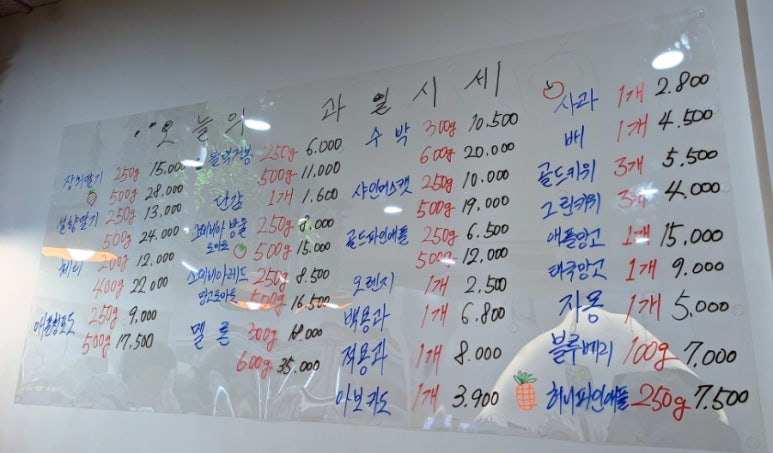 오늘의 과일시세
장희딸기 250g 15.000
500g 28.000
설향딸기 250g 13.000
500g 24.000
체리 200g 12.000
400g 22.000
애플청포도 250g 9.000
500g 17.500
블랙커봉 250g 6.000
500g 11.000
단감 1개 1.600
스테비아 방울 250g 8.000
토마토 500g 15.000
스테비아레드 250g 8.500
망고토마토 500g 16.500
멜론 300g
600g 35.000
수박 300g 10.500
600g 20.000
샤인머스캣 250g 10.000
500g 19.000
골드파인애플 250g 6.500
500g 12.000
오렌지 1개 2.500
백용과 1개 6.800
적용과 1개 8.000
아보카도 1개 3.900
사과 1개 2.800
배 1개 4.500
골드키위 3개 5.500
그린키위 3개 4.000
애플망고 1개 15.000
태국망고 1개 9.000
자몽 1개 5.000
블루베리 100g 7.000
허니파인애플 250g 7.500